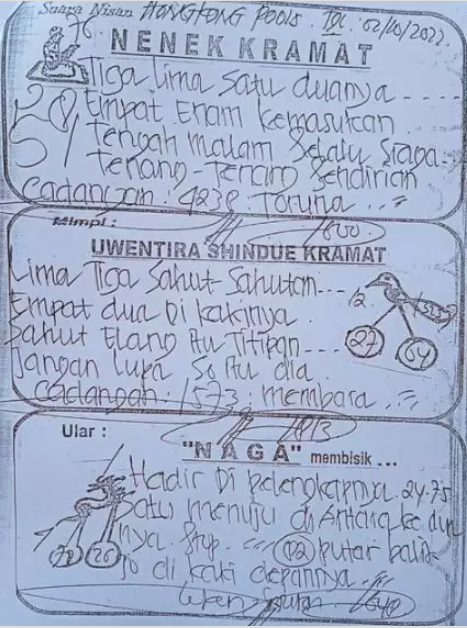 Suara Nisan HONGKONG POOLS. TGL. 02/10/2022.
NENEK KRAMAT
Tiga Lima Satu duanya ----
Empat Enam Kemasukan
Tengah malam Selalu Siaga.
Tenang-Tenang Sendirian
Cadangan. 4238. Taruna...
Mimpi :
UWENTIRA SHINDUE KRAMAT
Lima Tiga Sahut-Sahutan---- 12.
Empat dua Di kakinya.
Sahut Elang Itu Titipan ---- 27
Jangan Lupa So Itu dia. 54
Cadangan. 1573. membara.
1813
Ular :
"NAGA" membisik ...
Hadir Di pelengkapnya. 24.75
Satu menuju di Antara ke dua
nya. Stop. 12 putar balik
so di kaki depannya.